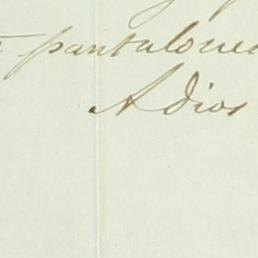 pantalones
Adios